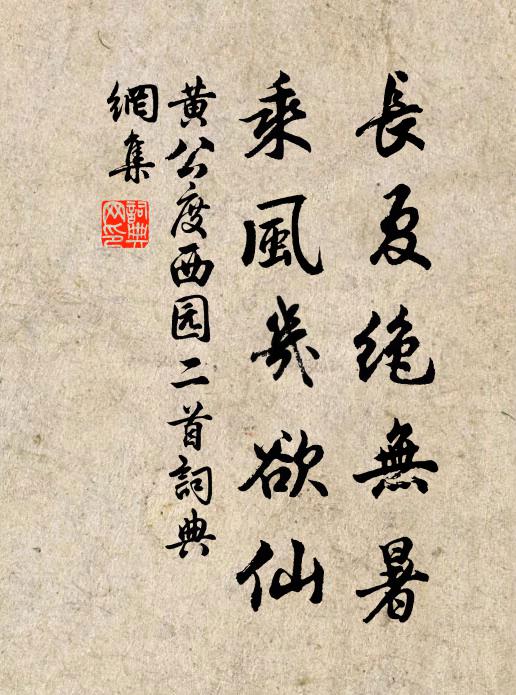 長夏绝無暑
乘風幾欲仙
黃公度西园二首詞典
網集
詞典
网印